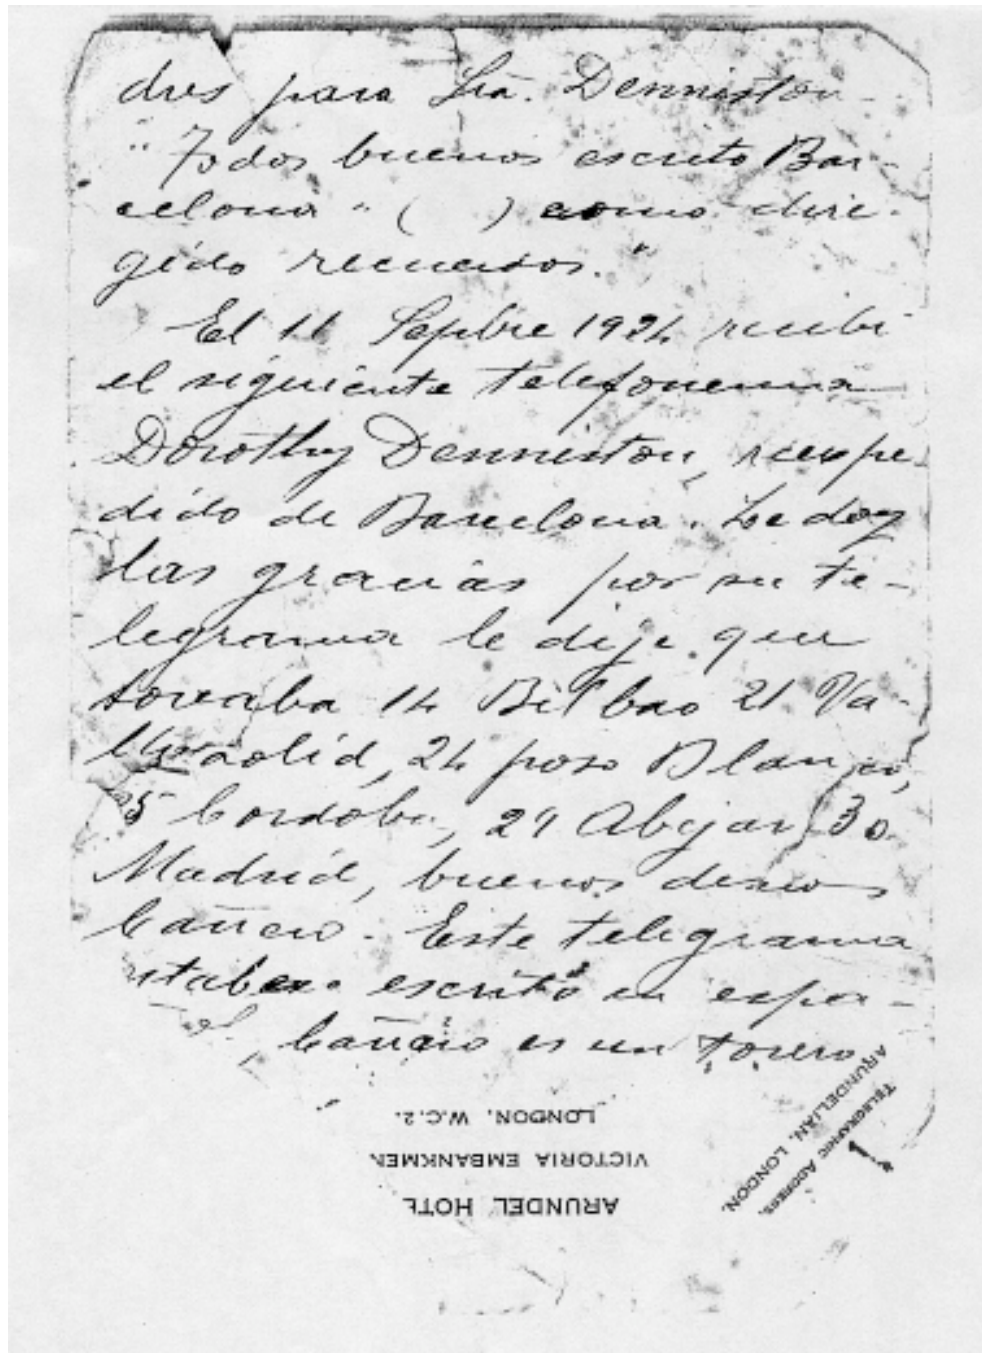 dres para Sra. Denniston
"Todos buenos escrito Bar-
celona" ( ) como diri-
gido recuerdos."
El 11 Sepbre 1924 recibi
el siguiente telefonema
Dorothy Denniston, reexpe-
dido de Barcelona. Le doy
las gracias por su te-
legrama le dije que
toreaba 14 Bilbao 21 Va-
lladolid, 24 pozo Blanco,
25 Cordoba, 29 Abejar, 30
Madrid, buenos deseos
Cañero. Este telegrama
estaba escrito en espa-
ñol, Cañero es un torero
ARUNDELIAN, LONDON.
TELEGRAPHIC ADDRESS,
LONDON, W.C.2.
VICTORIA EMBANKMEN
ARUNDEL HOTE